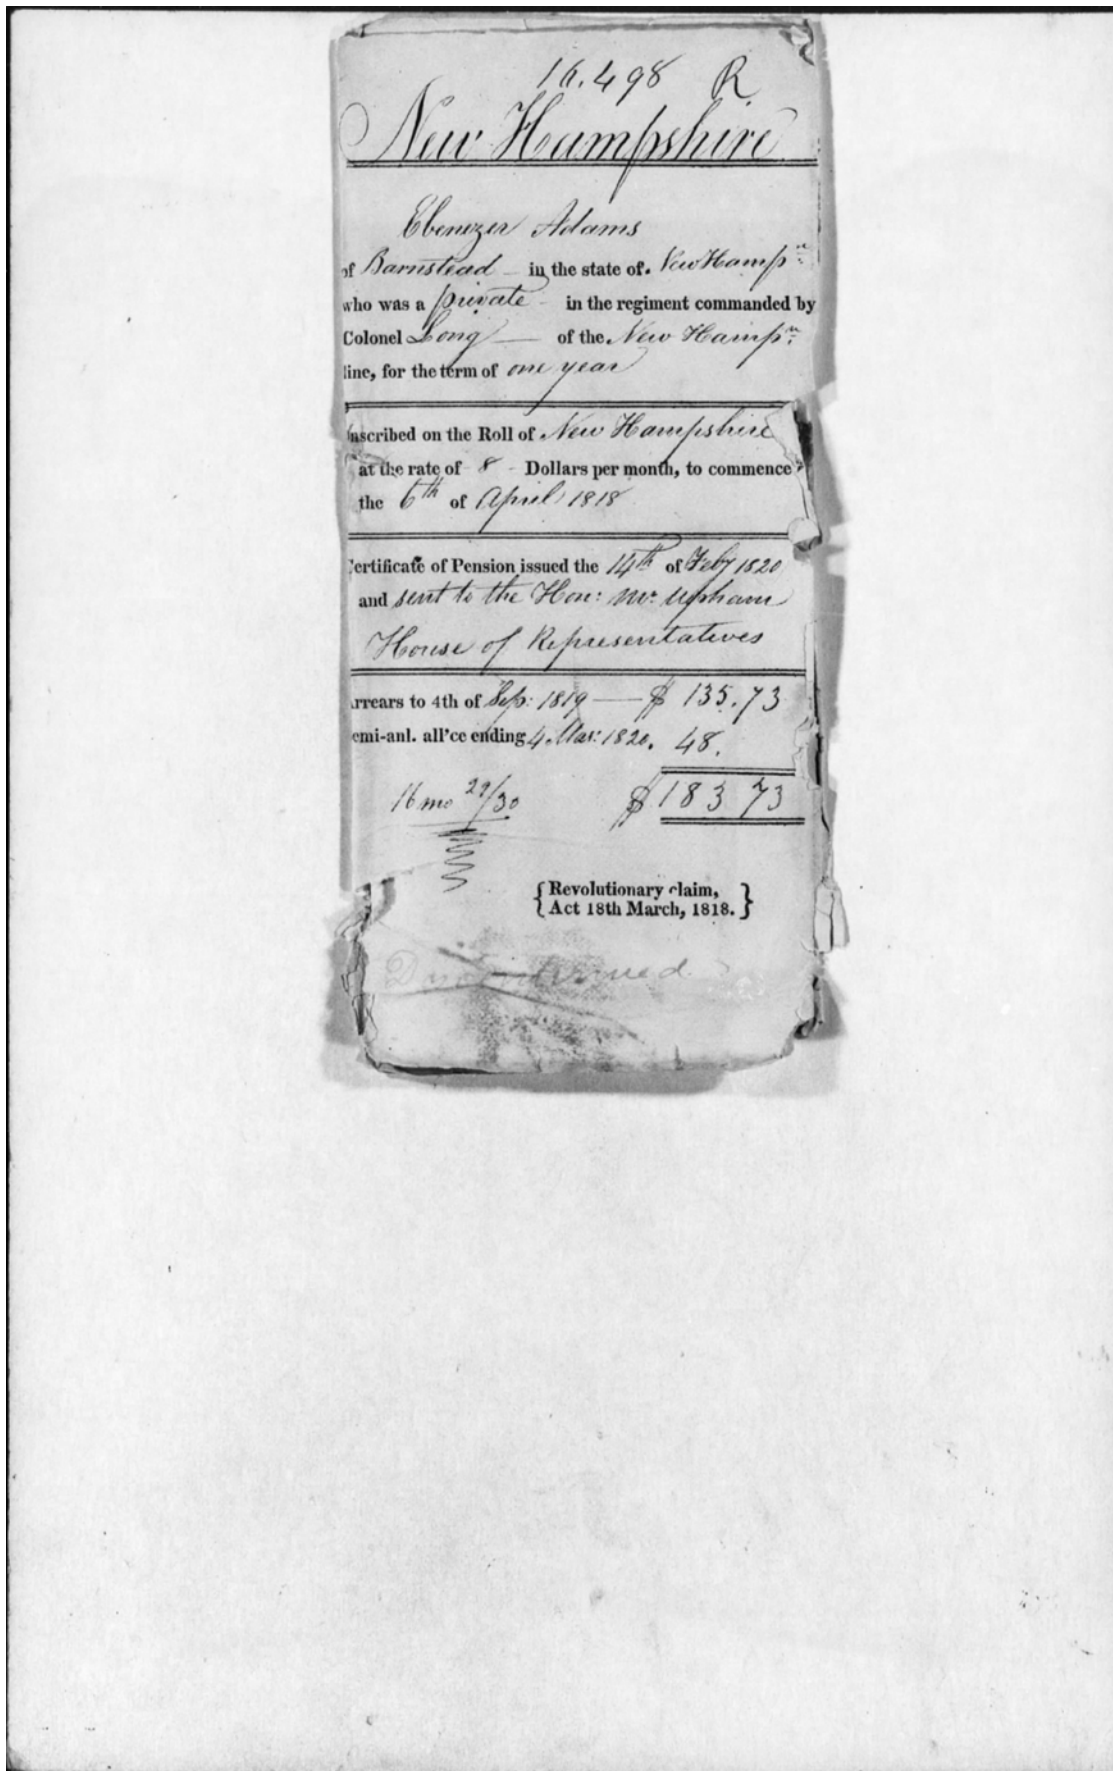 16.498 R
New Hampshire
Ebenezer Adams
of Barnstead - in the state of. New Hampr:
who was a private - in the regiment commanded by
Colonel Long — of the New Hampr:
line, for the term of one year
nscribed on the Roll of New Hampshire
at the rate of 8 - Dollars per month, to commence
the 6th of April 1818
ertificate of Pension issued the 14th of Feby 1820
and sent to the Hon: Mr. Upham
House of Representatives
rrears to 4th of Sep: 1819 — $ 135.73
emi-anl. all'ce ending 4 Mar: 1820. 48.
16 mo 29/30 $ 183 73
{Revolutionary claim,
Act 18th March, 1818.}